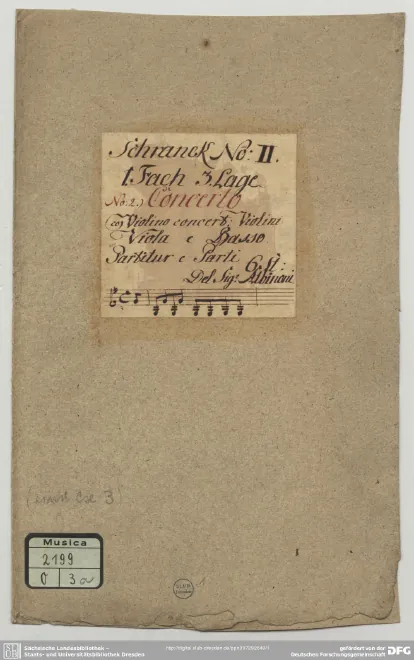 Schranck No: II.
1. Fach 3. Lage
No: 2.) Concerto
co Violino concert: Violini
Viola e Basso
Partitur e Parti
Del Sig: Albinoni
Musica
2199
O 3a
Sächsische Landesbibliothek –
Staats- und Universitätsbibliothek Dresden
gefördert von der
Deutschen Forschungsgemeinschaft
DFG